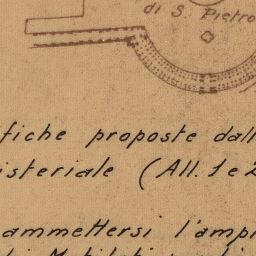 di S. Pietro
fiche proposte dall
isteriale (All. 1 e 2
ammettersi l'ampi